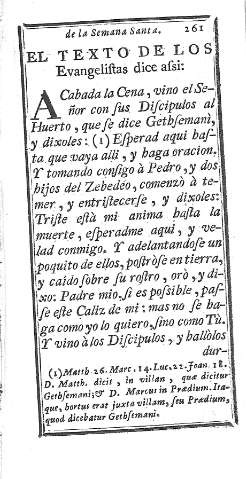 de la Semana Santa. 261
EL TEXTO DE LOS
Evangelistas dice assi:
ACabada la Cena, vino el Se-
ñor con sus Discipulos al
Huerto, que se dice Gethsemani,
y dixoles: (1) Esperad aqui has-
ta que vaya alli, y haga oracion.
Y tomando consigo à Pedro, y dos
hijos del Zebedeo, comenzò à te-
mer, y entristecerse, y dixoles:
Triste està mi anima hasta la
muerte, esperadme aqui, y ve-
lad conmigo. Y adelantandose un
poquito de ellos, postròse en tierra,
y caìdo sobre su rostro, orò, y di-
xo: Padre mio, si es possible, pas-
se este Caliz de mi: mas no se ha-
ga como yo lo quiero, sino como Tù.
Y vino à los Discipulos, y hallòlos
dur-
(1) Matth. 26. Marc. 14. Luc. 22. Joan. 18.
D. Matth. dicit, in villan, quæ dicitur
Gethsemani; & D. Marcus in Prædium. Ita-
que, hortus erat juxta villam, seu Prædium,
quod dicebatur Gethsemani.